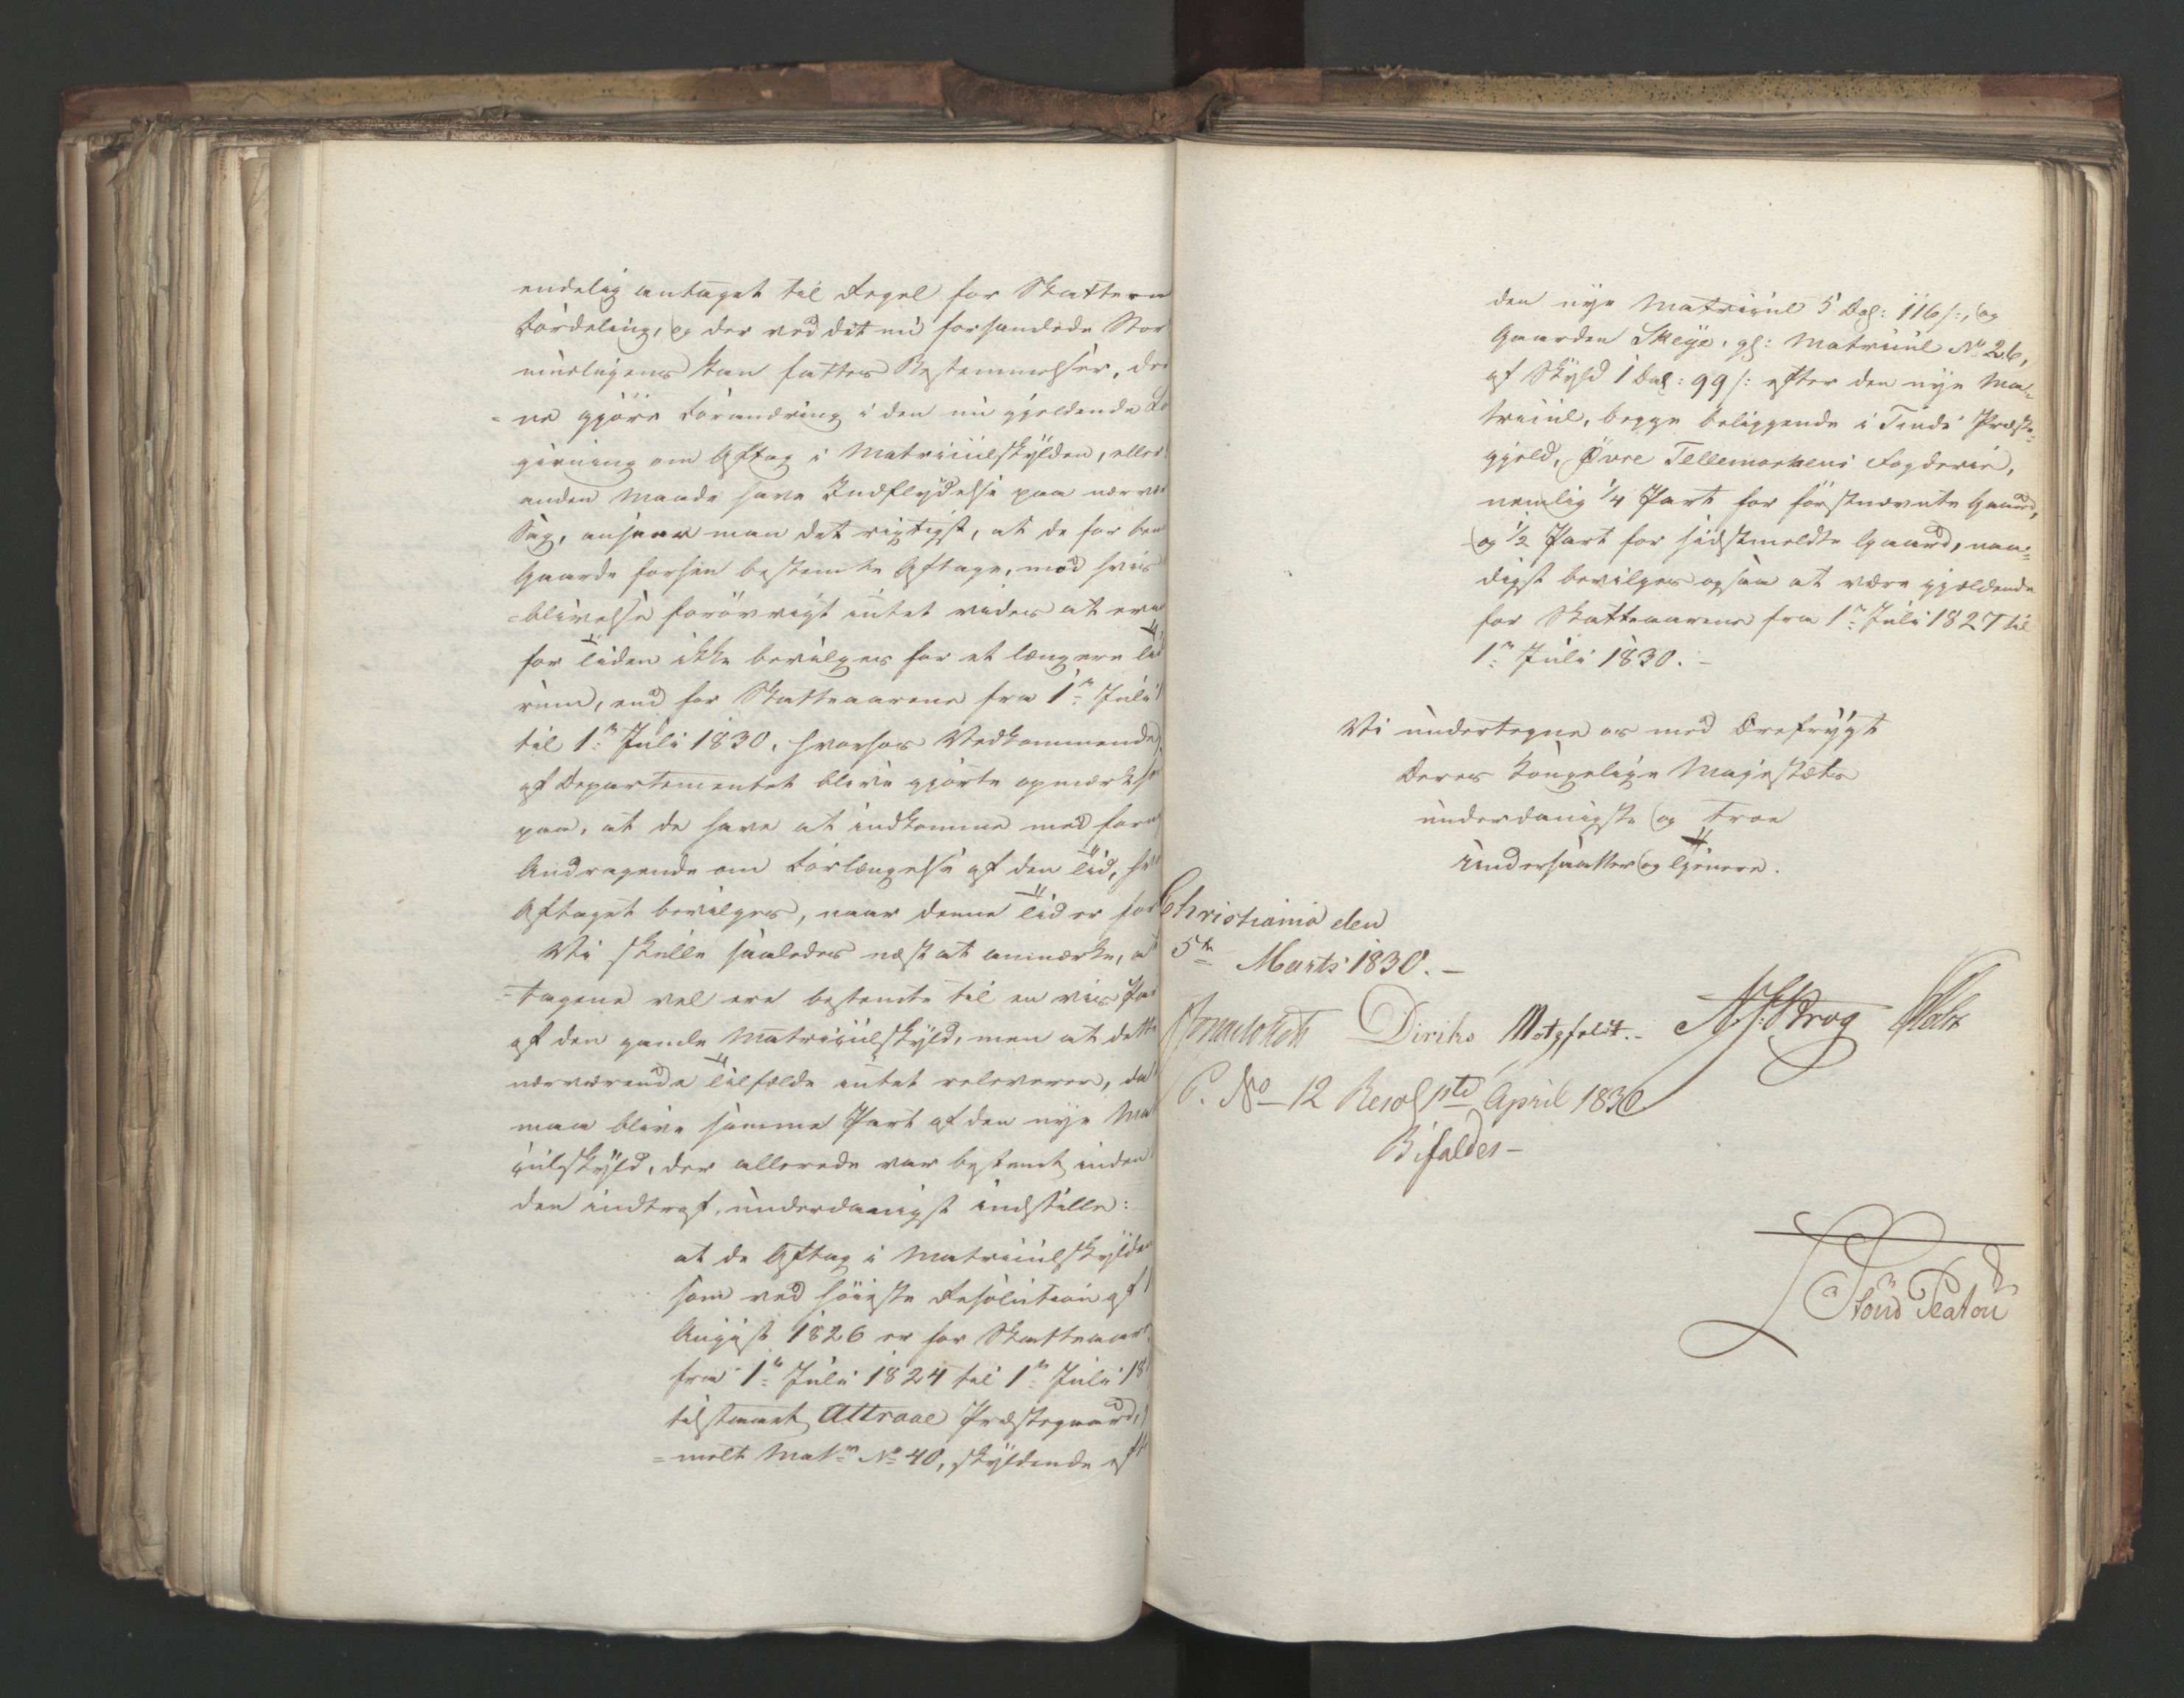 endelig antaget til Regel for Skattens
Fordeling, og der ved det nu forsamlede Stor
ns kan fattes Bestemmelser, der
ne gjöre Forandring i den nu gjeldende Lo
givning om Aftag i Matriculskylden, eller
anden Maade have Indflydelse paa nærvæ
Sag, ansees man det rigtigst, at de for ben
Gaarde forhen bestemte Aftage, med hvis
=blivelse forövrigt intet vides at være
for Tiden ikke bevilges for et længere Tid
rum, end for Skatteaarene fra 1ste Juli
til 1ste Juli 1830, hvorhos Vedkommende
af Departementet blive gjorte opmærks
paa, at de have at indkomme med for
Andragende om Forlængelse af den Tid, hv
Aftaget bevilges, naar denne Tid er for
Vi skulle saaledes næst at anmærke, at
=tagene vel ere bestemte til en vis Par
af den gamle Matriculskyld, men at dette
nærværende Tilfælde intet releverer, da
maa blive samme Part af den nye Mat
culskyld, der allerede var bestemt inden
den indtraf, underdanigst indstille:
at de Aftag i Matriculskylden
som ved höieste Resolution af
August 1826 er for Skatteaar
fra 1ste Juli 1824 til 1ste Juli 18
tilstaaet Attraae Præstegaard,
=melt Matr No 40, skyldende eft
den nye Matricul 5 Dal: 116 s:, og
Gaarden Skeye, gl: Matricul No 26,
af Skyld 1 Dal: 99 s: efter den nye Ma=
tricul, begge beliggende i Tinds Præste=
gjeld, Övre Tellemarkens Fogderie,
nemlig 1/4 Part for förstnævnte Gaard,
og 1/2 Part for sidstmeldte Gaard, naa=
digst bevilges ogsaa at være gjældende
for Skatteaarene fra 1ste Juli 1827 til
1ste Juli 1830.-
Vi undertegne os med Ærefrygt
Deres Kongelige Majestæts
underdanigste og troe
Undersaatter og Tjenere.
Christiania den
5te Marts 1830.-
Diriks Motzfeldt.- Krog Holst
P. No 12 Resol 1ste April 1830
Bifaldes-
Platou